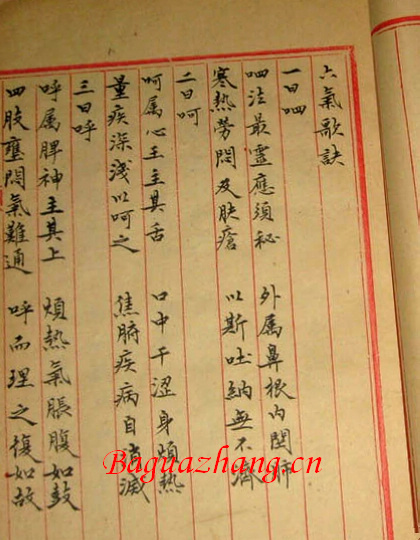 六氣歌訣
一曰呬
呬法最靈應須秘 外属鼻根內関肺
寒熱勞悶及肤瘡 以斯吐納無不濟
二曰呵
呵属心王主其舌 口中干涩身煩熱
量疾深浅以呵之 焦腑疾病自消滅
三曰呼
呼属脾神主其上 煩熱氣脹腹如鼓
四肢壅悶氣難通 呼而理之複如故
Baguazhang.cn